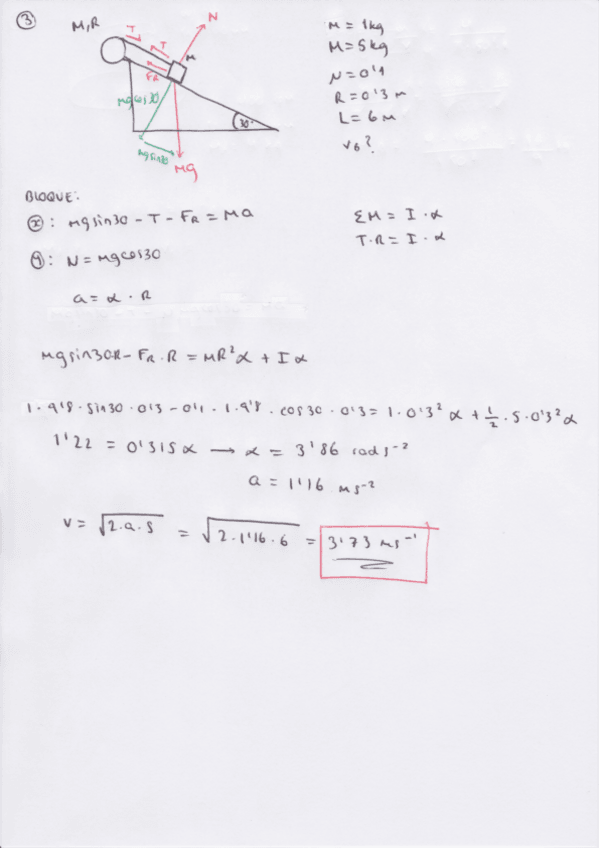 3
M,R
N
T
T
M
FR
mgcos30
30°
mgsin30
mg
m = 1kg
M = 5kg
μ = 0'1
R = 0'3 m
L = 6 m
v6?
BLOQUE:
x: mgsin30 - T - FR = ma
y: N = mgcos30
a = α · R
ΣM = I · α
T·R = I · α
mgsin30·R - FR·R = mR²α + Iα
1·9'8·sin30·0'3 - 0'1·1·9'8·cos30·0'3 = 1·0'3²α + 1/2·5·0'3²α
1'22 = 0'315α → α = 3'86 rad s⁻²
a = 1'16 ms⁻²
v = √2·a·s = √2·1'16·6 = 3'73 ms⁻¹